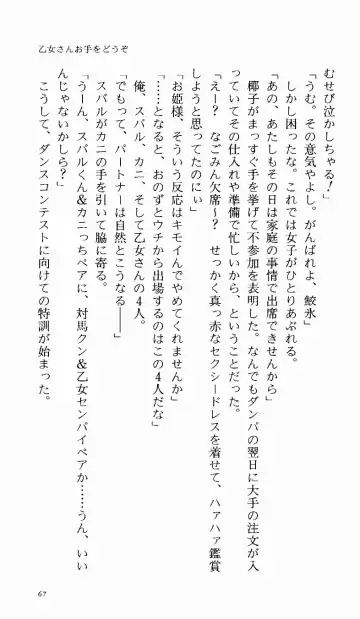 乙女さんお手をどうぞ
むせび泣かしちゃる！」
「うむ。その意気やよし。がんばれよ、鮫氷」
しかし困ったな。これでは女子がひとりあぶれる。
「あの、あたしもその日は家庭の事情で出席できせんから」
椰子がまっすぐ手を挙げて不参加を表明した。なんでもダンパの翌日に大手の注文が入
っていてその仕入れや準備で忙しいから、ということだった。
「えー？　なごみん欠席〜？　せっかく真っ赤なセクシードレスを着せて、ハァハァ鑑賞
しようと思ってたのにぃ」
「お姫様、そういう反応はキモイんでやめてくれませんか」
「……となると、おのずとウチから出場するのはこの４人だな」
俺、スバル、カニ、そして乙女さんの４人。
「でもって、パートナーは自然とこうなる――」
スバルがカニの手を引いて脇に寄る。
「うーん、スバルくん＆カニっちペアに、対馬クン＆乙女センパイペアか……うん、いい
んじゃないかしら？」
こうして、ダンスコンテストに向けての特訓が始まった。
67